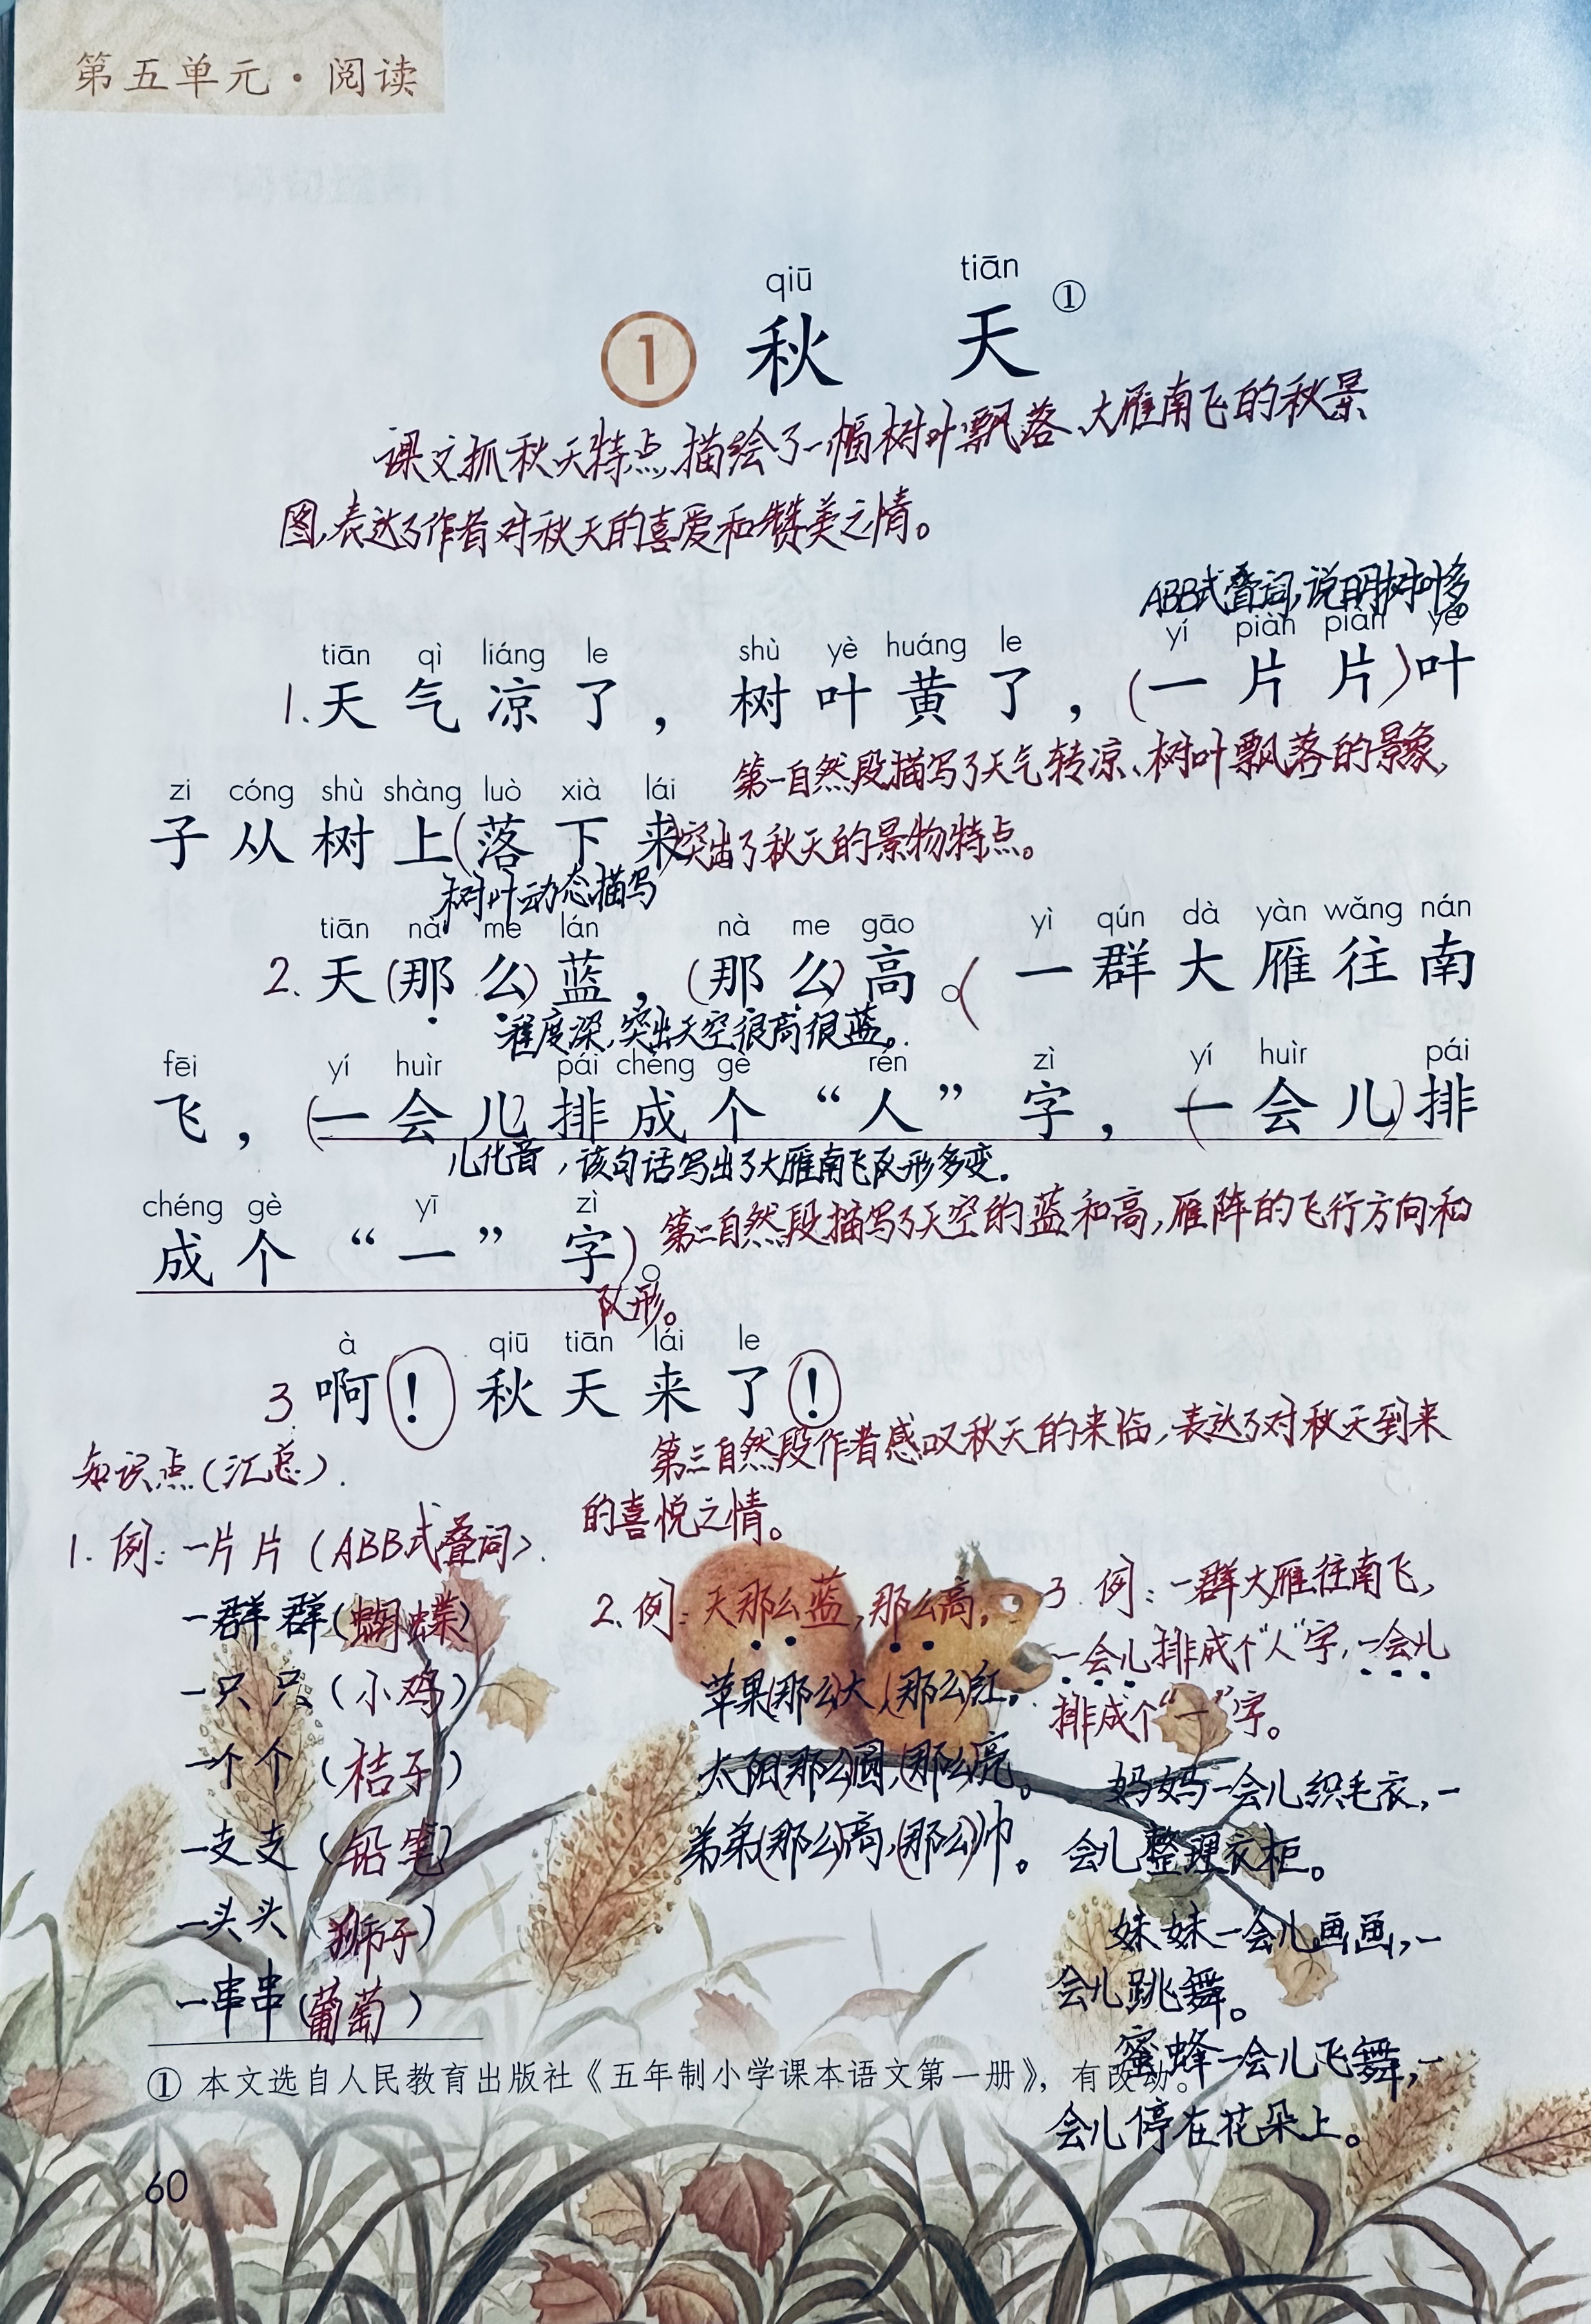 第五单元·阅读
qiū tiān
1 秋 天 ①
课文抓秋天特点,描绘了一幅树叶飘落、大雁南飞的秋景
图,表达了作者对秋天的喜爱和赞美之情。
ABB式叠词,说明树叶多
tiān qì liáng le shù yè huáng le yí piàn piàn yè
1.天气凉了,树叶黄了,(一片片)叶
第一自然段描写了天气转凉、树叶飘落的景象,
zi cóng shù shàng luò xià lái
子从树上(落下来)突出了秋天的景物特点。
树叶动态描写
tiān nà me lán nà me gāo yì qún dà yàn wǎng nán
2.天(那么)蓝,(那么)高。(一群大雁往南
程度深,突出天空很高很蓝。
fēi yí huìr pái chéng gè rén zì yí huìr pái
飞,(一会儿)排成个“人”字,(一会儿)排
儿化音,该句话写出了大雁南飞队形多变。
chéng gè yī zì
成个“一”字)。第二自然段描写了天空的蓝和高,雁阵的飞行方向和
队形。
à qiū tiān lái le
3 啊!秋天来了!
第三自然段作者感叹秋天的来临,表达了对秋天到来
的喜悦之情。
知识点(汇总).
1.例:一片片(ABB式叠词).
一群群(蝴蝶)
一只只(小鸡)
一个个(桔子)
一支支(铅笔)
一头头(狮子)
一串串(葡萄)
2.例:天那么蓝,那么高。
苹果(那么)大,(那么)红。
太阳(那么)圆,(那么)亮。
弟弟(那么)高,(那么)帅。
3.例:一群大雁往南飞,
一会儿排成个“人”字,一会儿
排成个“一”字。
妈妈一会儿织毛衣,一
会儿整理衣柜。
妹妹一会儿画画,一
会儿跳舞。
蜜蜂一会儿飞舞,一
会儿停在花朵上。
① 本文选自人民教育出版社《五年制小学课本语文第一册》,有改动。
60